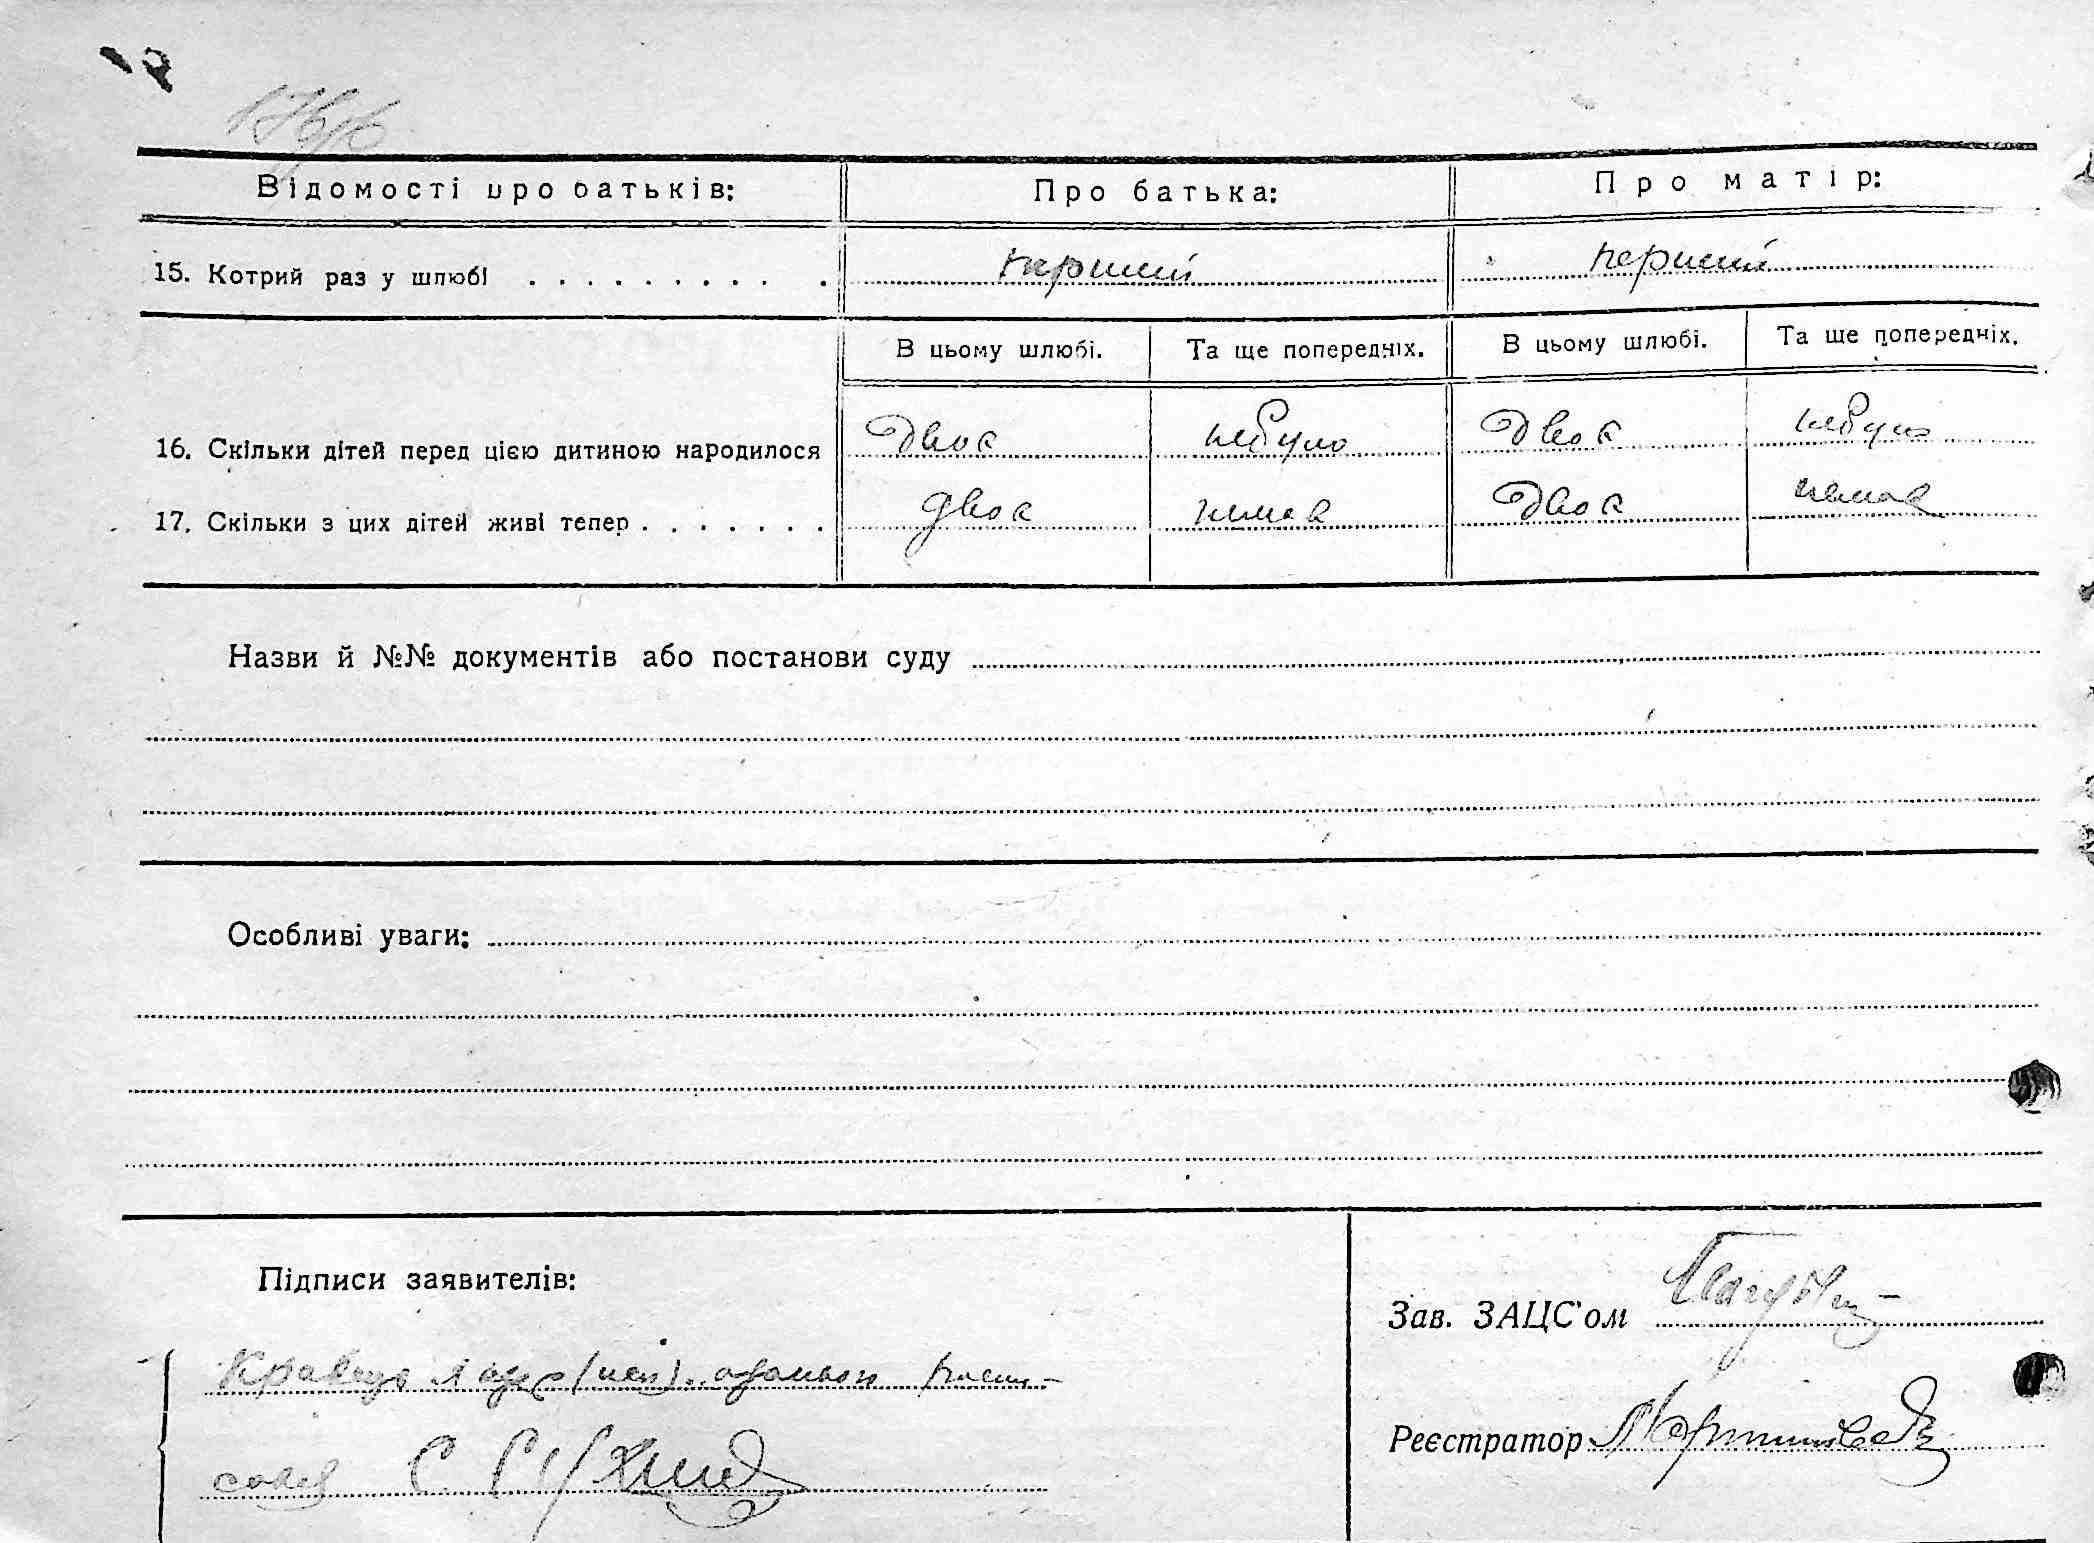 Відомості про батьків: Про батька: Про матір:
15. Котрий раз у шлюбі . . . . . . . . . . перший перший
В цьому шлюбі. Та ще попередніх. В цьому шлюбі. Та ще попередніх.
16. Скільки дітей перед цією дитиною народилося двоє небуло двоє небуло
17. Скільки з цих дітей живі тепер . . . . . . . двоє немає двоє немає
Назви й №№ документів або постанови суду
Особливі уваги:
Підписи заявителів:
Зав. ЗАЦС'ом
Кравець
Реєстратор